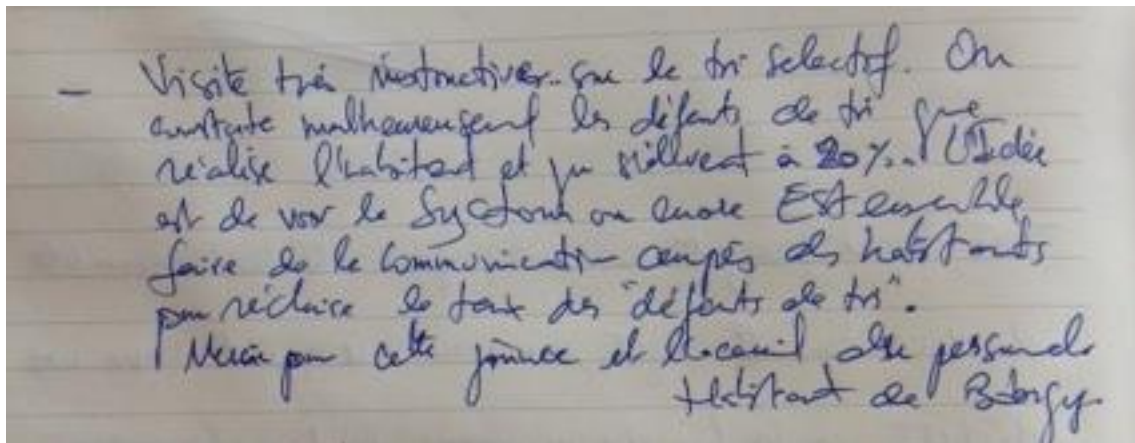 - Visite très instructives.. sur le tri selectif. On
constate malheureusement les défauts de tri que
réalise l'habitant et qui s'élèvent à 20%.. L'Idée
est de voir le Syctom ou encore Est ensemble
faire de la communication auprès des habitants
pour réduire le taux des "défauts de tri".
Merci pour cette journée et l'accueil du personnel
Habitant de Bobigny